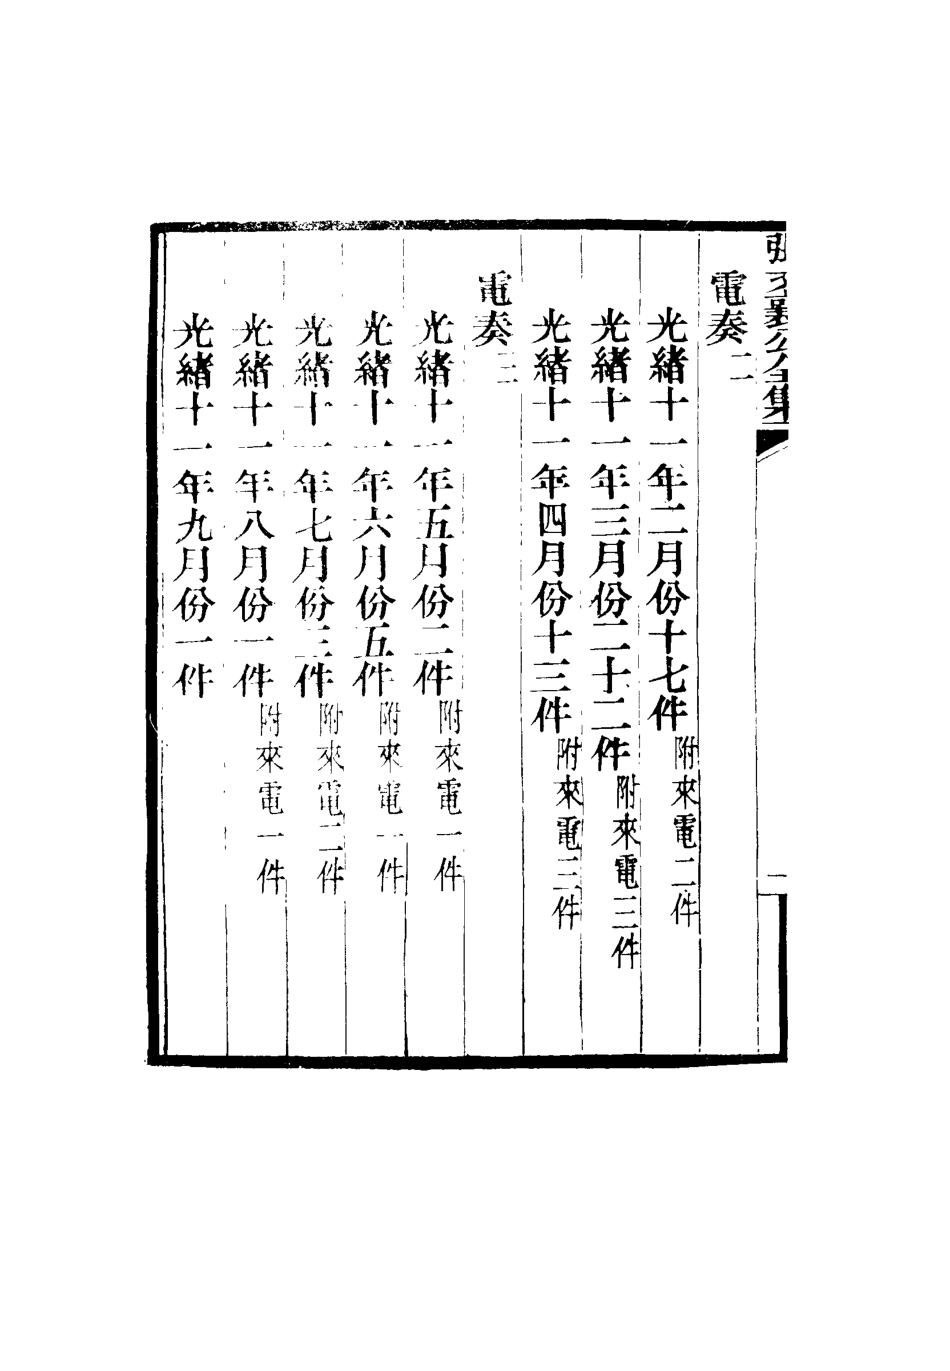 張文襄公全集
電奏二
光緒十一年二月份十七件附來電二件
光緒十一年三月份二十二件附來電三件
光緒十一年四月份十三件附來電三件
電奏三
光緒十一年五月份二件附來電一件
光緒十一年六月份五件附來電一件
光緒十一年七月份三件附來電二件
光緒十一年八月份一件附來電一件
光緒十一年九月份一件